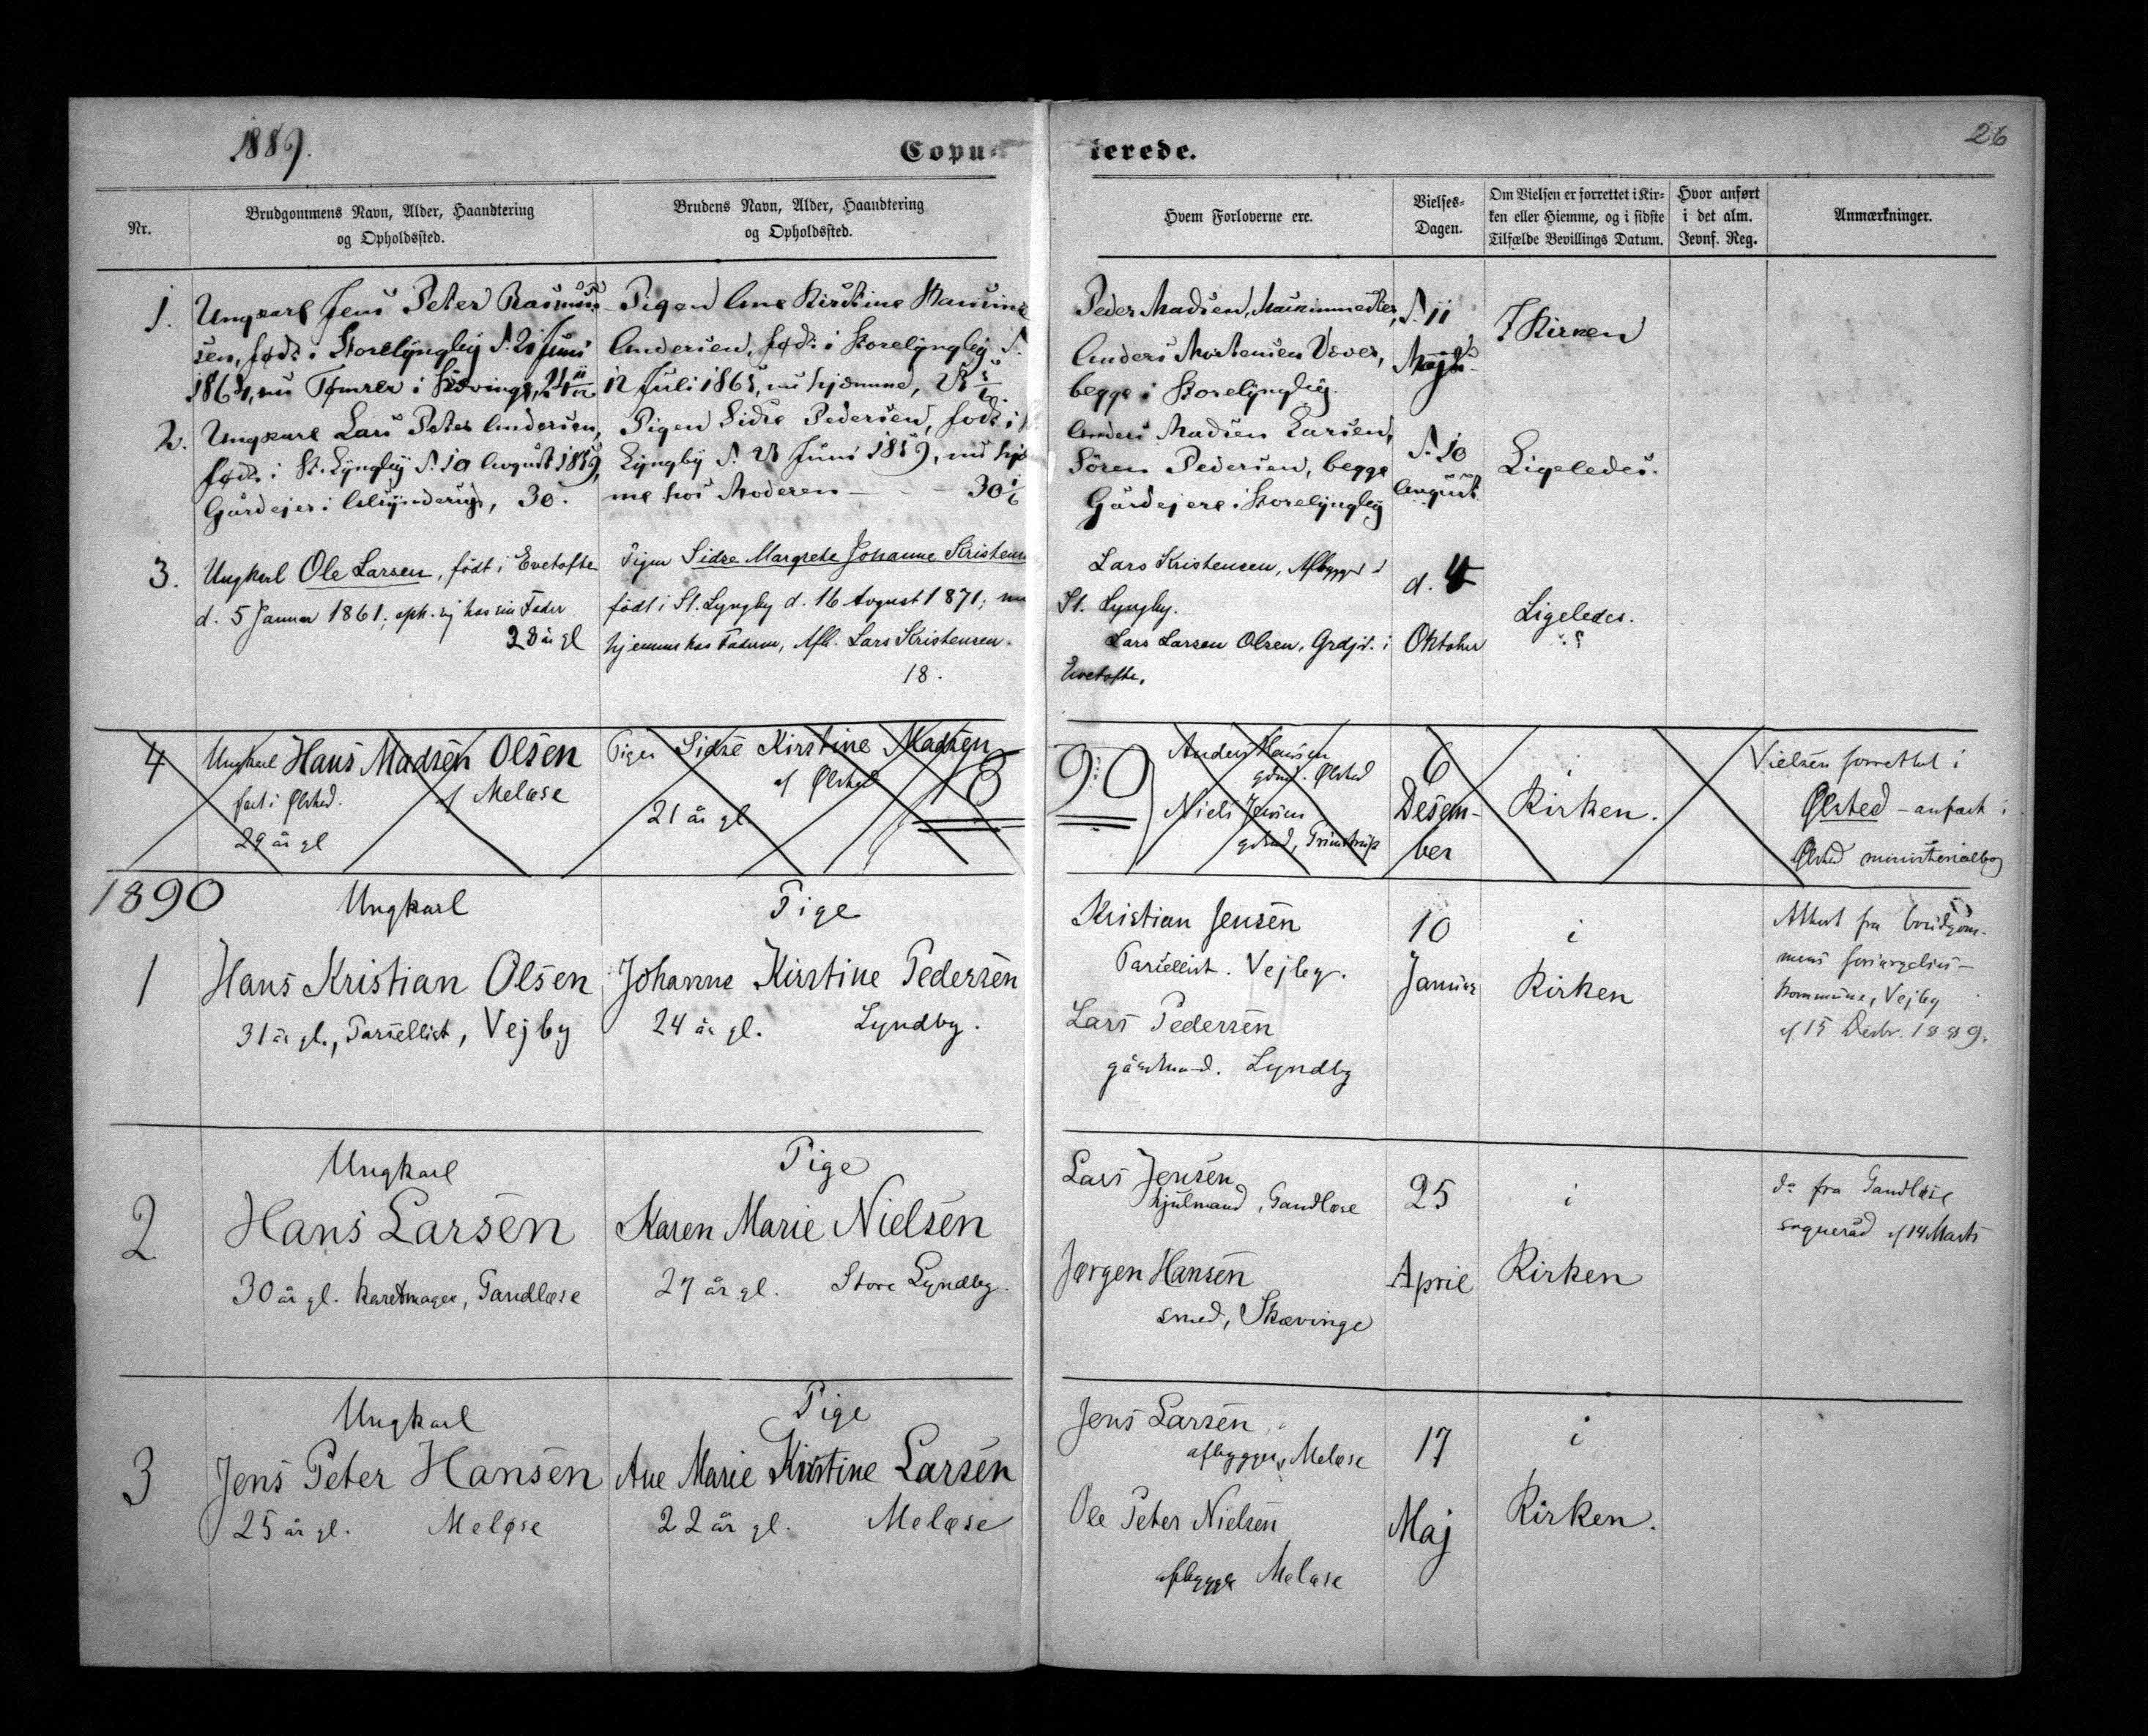 1889.
Copulerede.
26
Nr.
Brudgommens Navn, Alder, Haandtering
og Opholdssted.
Brudens Navn, Alder, Haandtering
og Opholdssted.
Hvem Forloverne ere.
Vielses-
Dagen.
Om Vielsen er forrettet i Kir-
ken eller Hiemme, og i sidste
Tilfælde Bevillings Datum.
Hvor anført
i det alm.
Jevnf. Reg.
Anmærkninger.
1.
Ungkarl Jens Peter Rasmus-
sen, født i Storelyngby d. 21 Juni
nu Tømrer i Skævinge, 24
Pigen Ane Kirstine
Andersen, født i Storelyngby d.
12 Juli 1865, nu hjemme, 23
Peder Madsen,
Anders Mortensen Væver,
begge i Storelyngby
d. 11
Maj
I Kirken
2.
Ungkarl Lars Peter Andersen,
født i St. Lyngby d. 10 August 1859,
Gårdejer i 30.
Pigen Sidse Pedersen, født i
Lyngby d. Juni 1859, nu hje-
me hos Moderen - - - 30 1/6
Anders Madsen Larsen,
Sören Pedersen, begge
Gårdejere i Storelyngby
d. 10
August
Ligeledes.
3.
Ungkarl Ole Larsen, født i Evetofte
d. 5 Januar 1861; oph. sig hos sin Fader
28 år gl
Pigen Sidse Margrete Johanne Kristens
født i St. Lyngby d. 16 Avgust 1871; nu
hjemme hos Faderen, Afb. Lars Kristensen.
18.
Lars Kristensen, Afbygger i
St. Lyngby.
Lars Larsen Olsen, Grdjr. i
Evetofte.
d. 4
Oktober
Ligeledes.
4
Ungkarl Hans Madsen Olsen
født i Ølsted. af Melöse
29 år gl
Pigen Sidse Kirstine Madsen
af Ølsted
21 år gl.
18
90
Anders Hansen
gdmd. Ølsted
Niels Jensen
gdmd, Grimstrup
6
Desem-
ber
i
Kirken.
Vielsen forrettet i
Ølsted - anført i
Ølsted ministerialbog
1890
1
Ungkarl
Hans Kristian Olsen
31 år gl., Parsellist, Vejby
Pige
Johanne Kirstine Pedersen
24 år gl. Lyndby.
Kristian Jensen
Parsellist. Vejby.
Lars Pedersen
gårdmand. Lyndby
10
Januar
i
Kirken
Attest fra brudgom-
mens forsørgelses-
kommune, Vejby
af 15 Desbr. 1889.
2
Ungkarl
Hans Larsen
30 år gl. karetmager, Gandløse
Pige
Karen Marie Nielsen
27 år gl. Store Lyndby.
Lars Jensen
hjulmand, Gandløse
Jørgen Hansen
smed, Skævinge
25
April
i
Kirken
do fra Gandløse
sogneråd af 14 Marts
3
Ungkarl
Jens Peter Hansen
25 år gl. Meløse
Pige
Ane Marie Kirstine Larsen
22 år gl. Meløse
Jens Larsen
afbygger, Meløse
Ole Peter Nielsen
afbygger Meløse
17
Maj
i
Kirken.